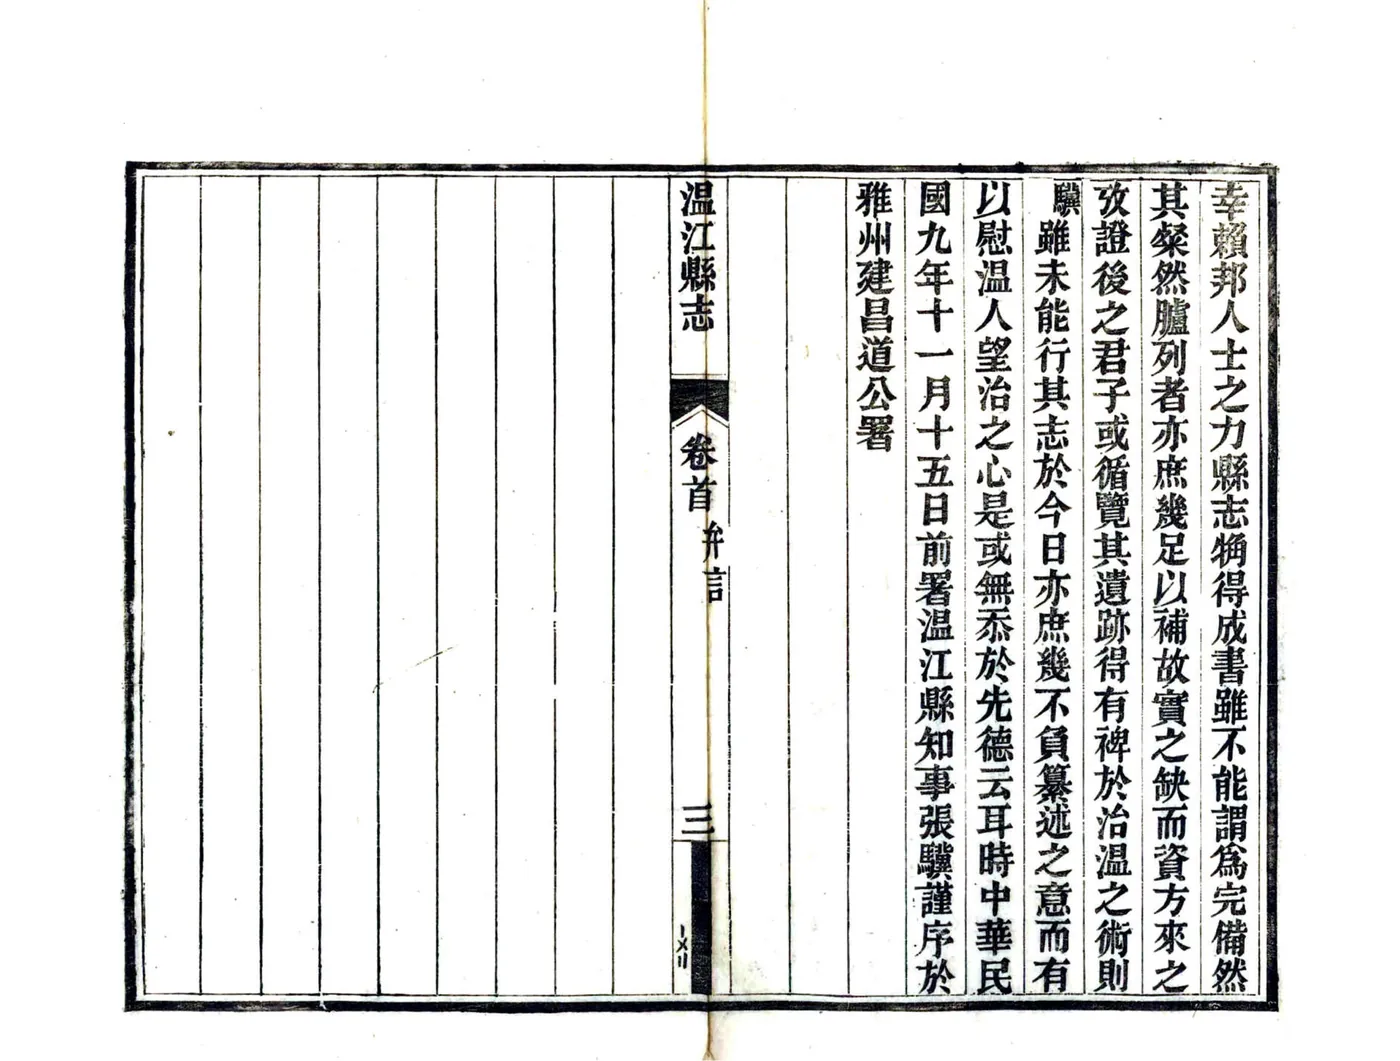 幸賴邦人士之力縣志觕得成書雖不能謂爲完備然
其粲然臚列者亦庶幾足以補故實之缺而資方來之
攷證後之君子或循覽其遺跡得有裨於治温之術則
驥雖未能行其志於今日亦庶幾不負纂述之意而有
以慰温人望治之心是或無忝於先德云耳時中華民
國九年十一月十五日前署温江縣知事張驥謹序於
雅州建昌道公署
温江縣志
卷首
弁言
三